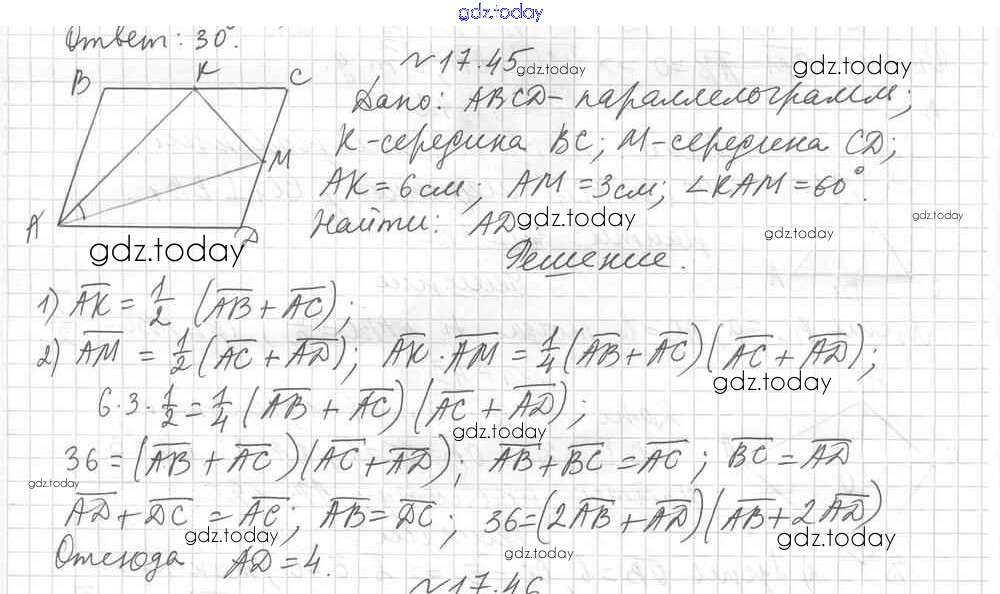 gdz.today
Ответ: 30°.
№17.45 gdz.today gdz.today
B K C
M
A D
Дано: ABCD – параллелограмм;
K – середина BC; M – середина CD;
AK = 6 см; AM = 3 см; ∠KAM = 60°.
Найти: AD. gdz.today gdz.today
gdz.today gdz.today
Решение.
1) A̅K̅ = 1/2 (A̅B̅ + A̅C̅);
2) A̅M̅ = 1/2 (A̅C̅ + A̅D̅); A̅K̅ · A̅M̅ = 1/4 (A̅B̅ + A̅C̅)(A̅C̅ + A̅D̅);
gdz.today
6·3·1/2 = 1/4 (A̅B̅ + A̅C̅)(A̅C̅ + A̅D̅);
gdz.today
36 = (A̅B̅ + A̅C̅)(A̅C̅ + A̅D̅); A̅B̅ + B̅C̅ = A̅C̅; B̅C̅ = A̅D̅
gdz.today
A̅D̅ + D̅C̅ = A̅C̅; A̅B̅ = D̅C̅; 36 = (2A̅B̅ + A̅D̅)(A̅B̅ + 2A̅D̅)
gdz.today gdz.today
Отсюда AD = 4. gdz.today
№17.46